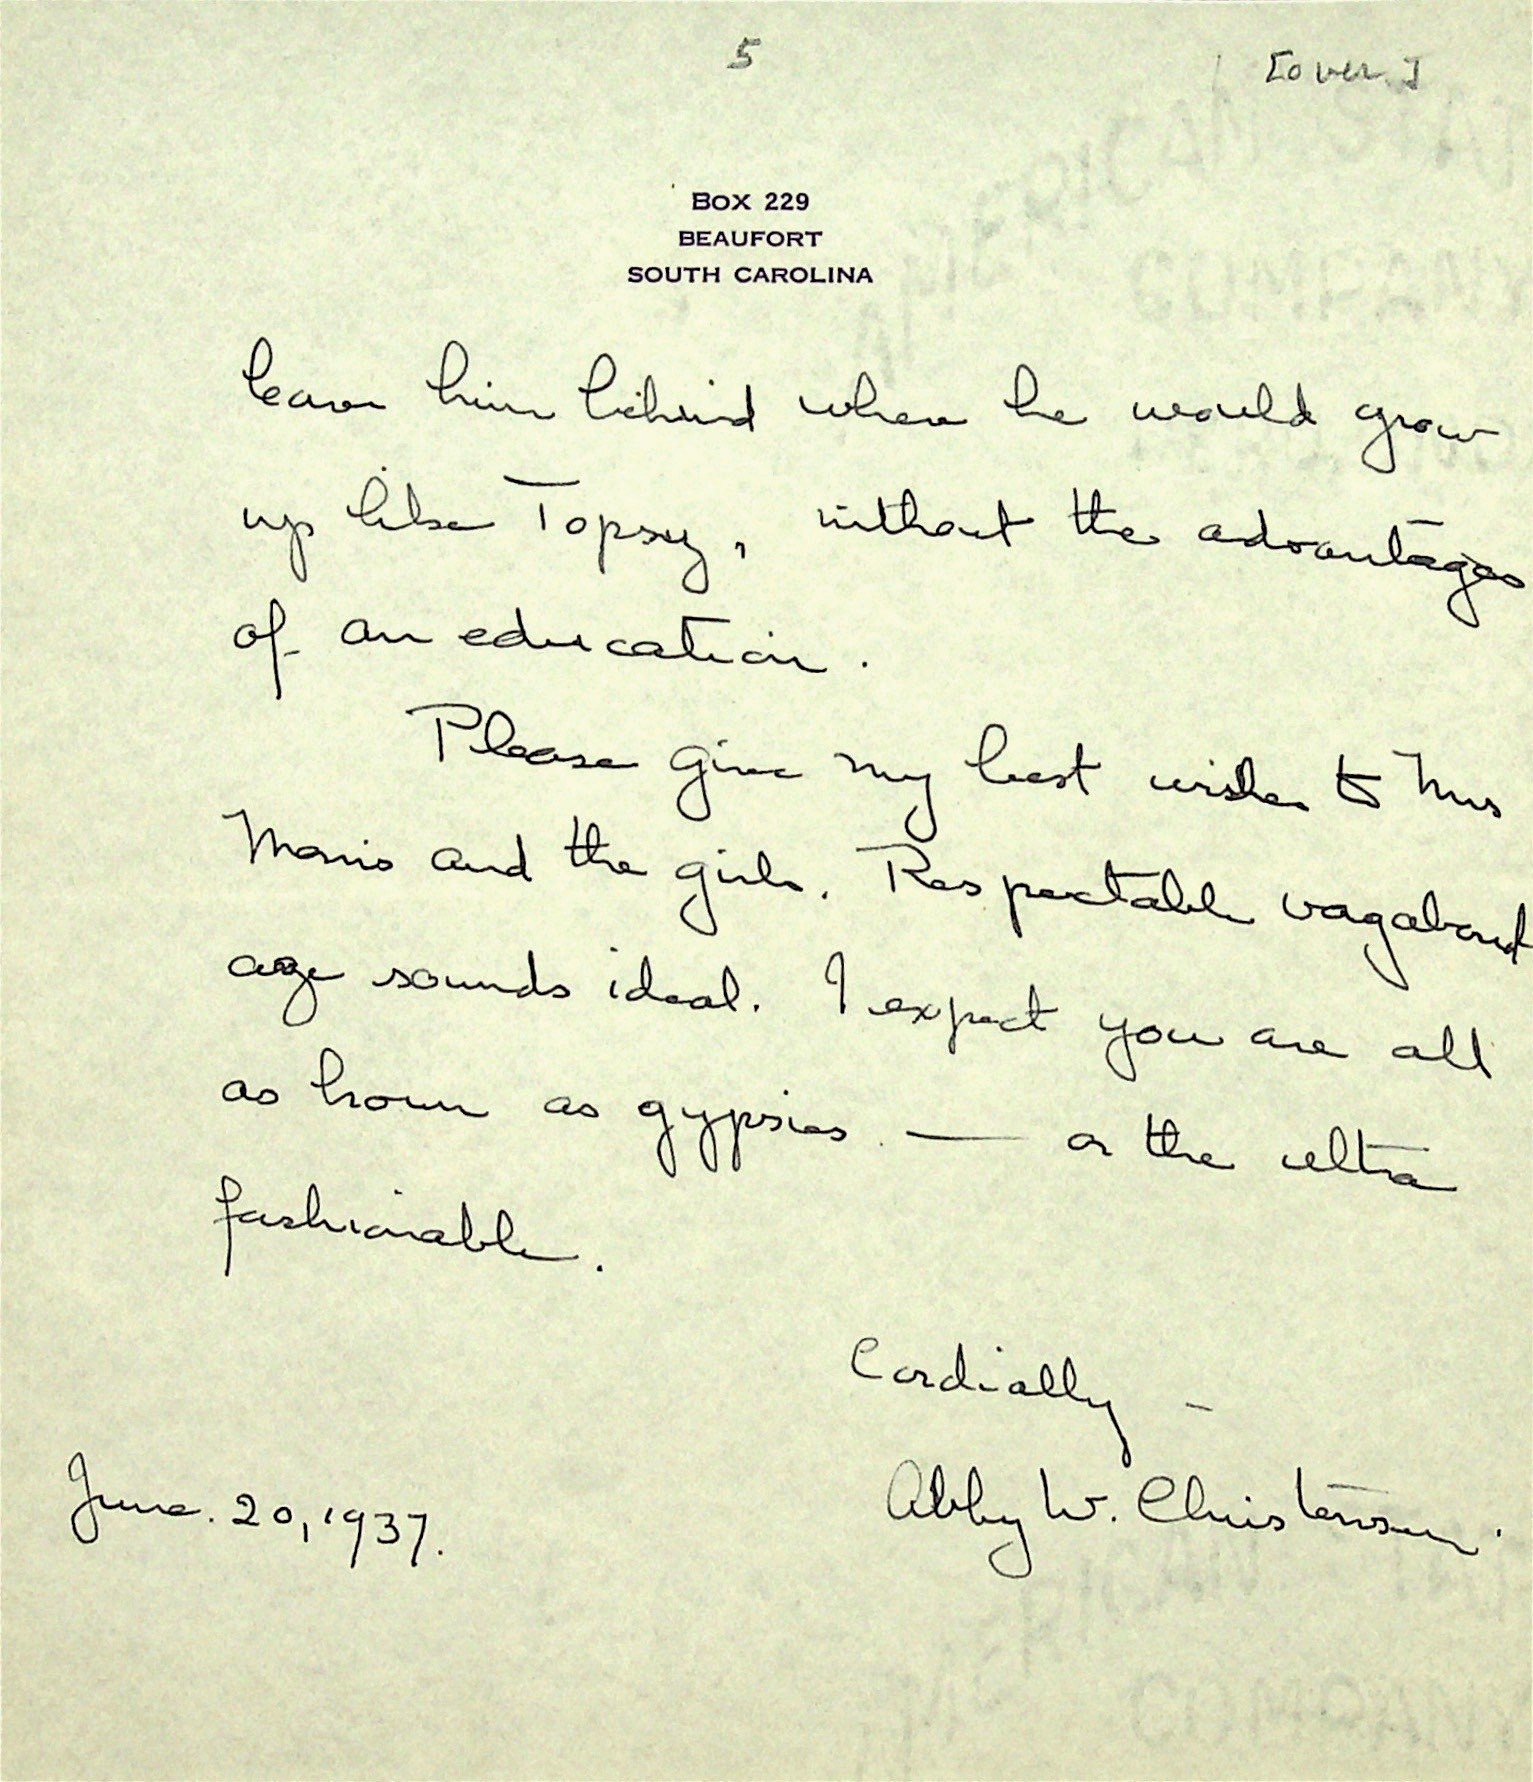 5
[over]
BOX 229
BEAUFORT
SOUTH CAROLINA
leave him behind where he would grow
up like Topsy, without the advantages
of an education.
Please give my best wishes to Mrs
Morris and the girls. Respectable vagabond
age sounds ideal. I expect you are all
as brown as gypsies — or the ultra
fashionable.
Cordially -
Abby W. Christensen.
June. 20, 1937.